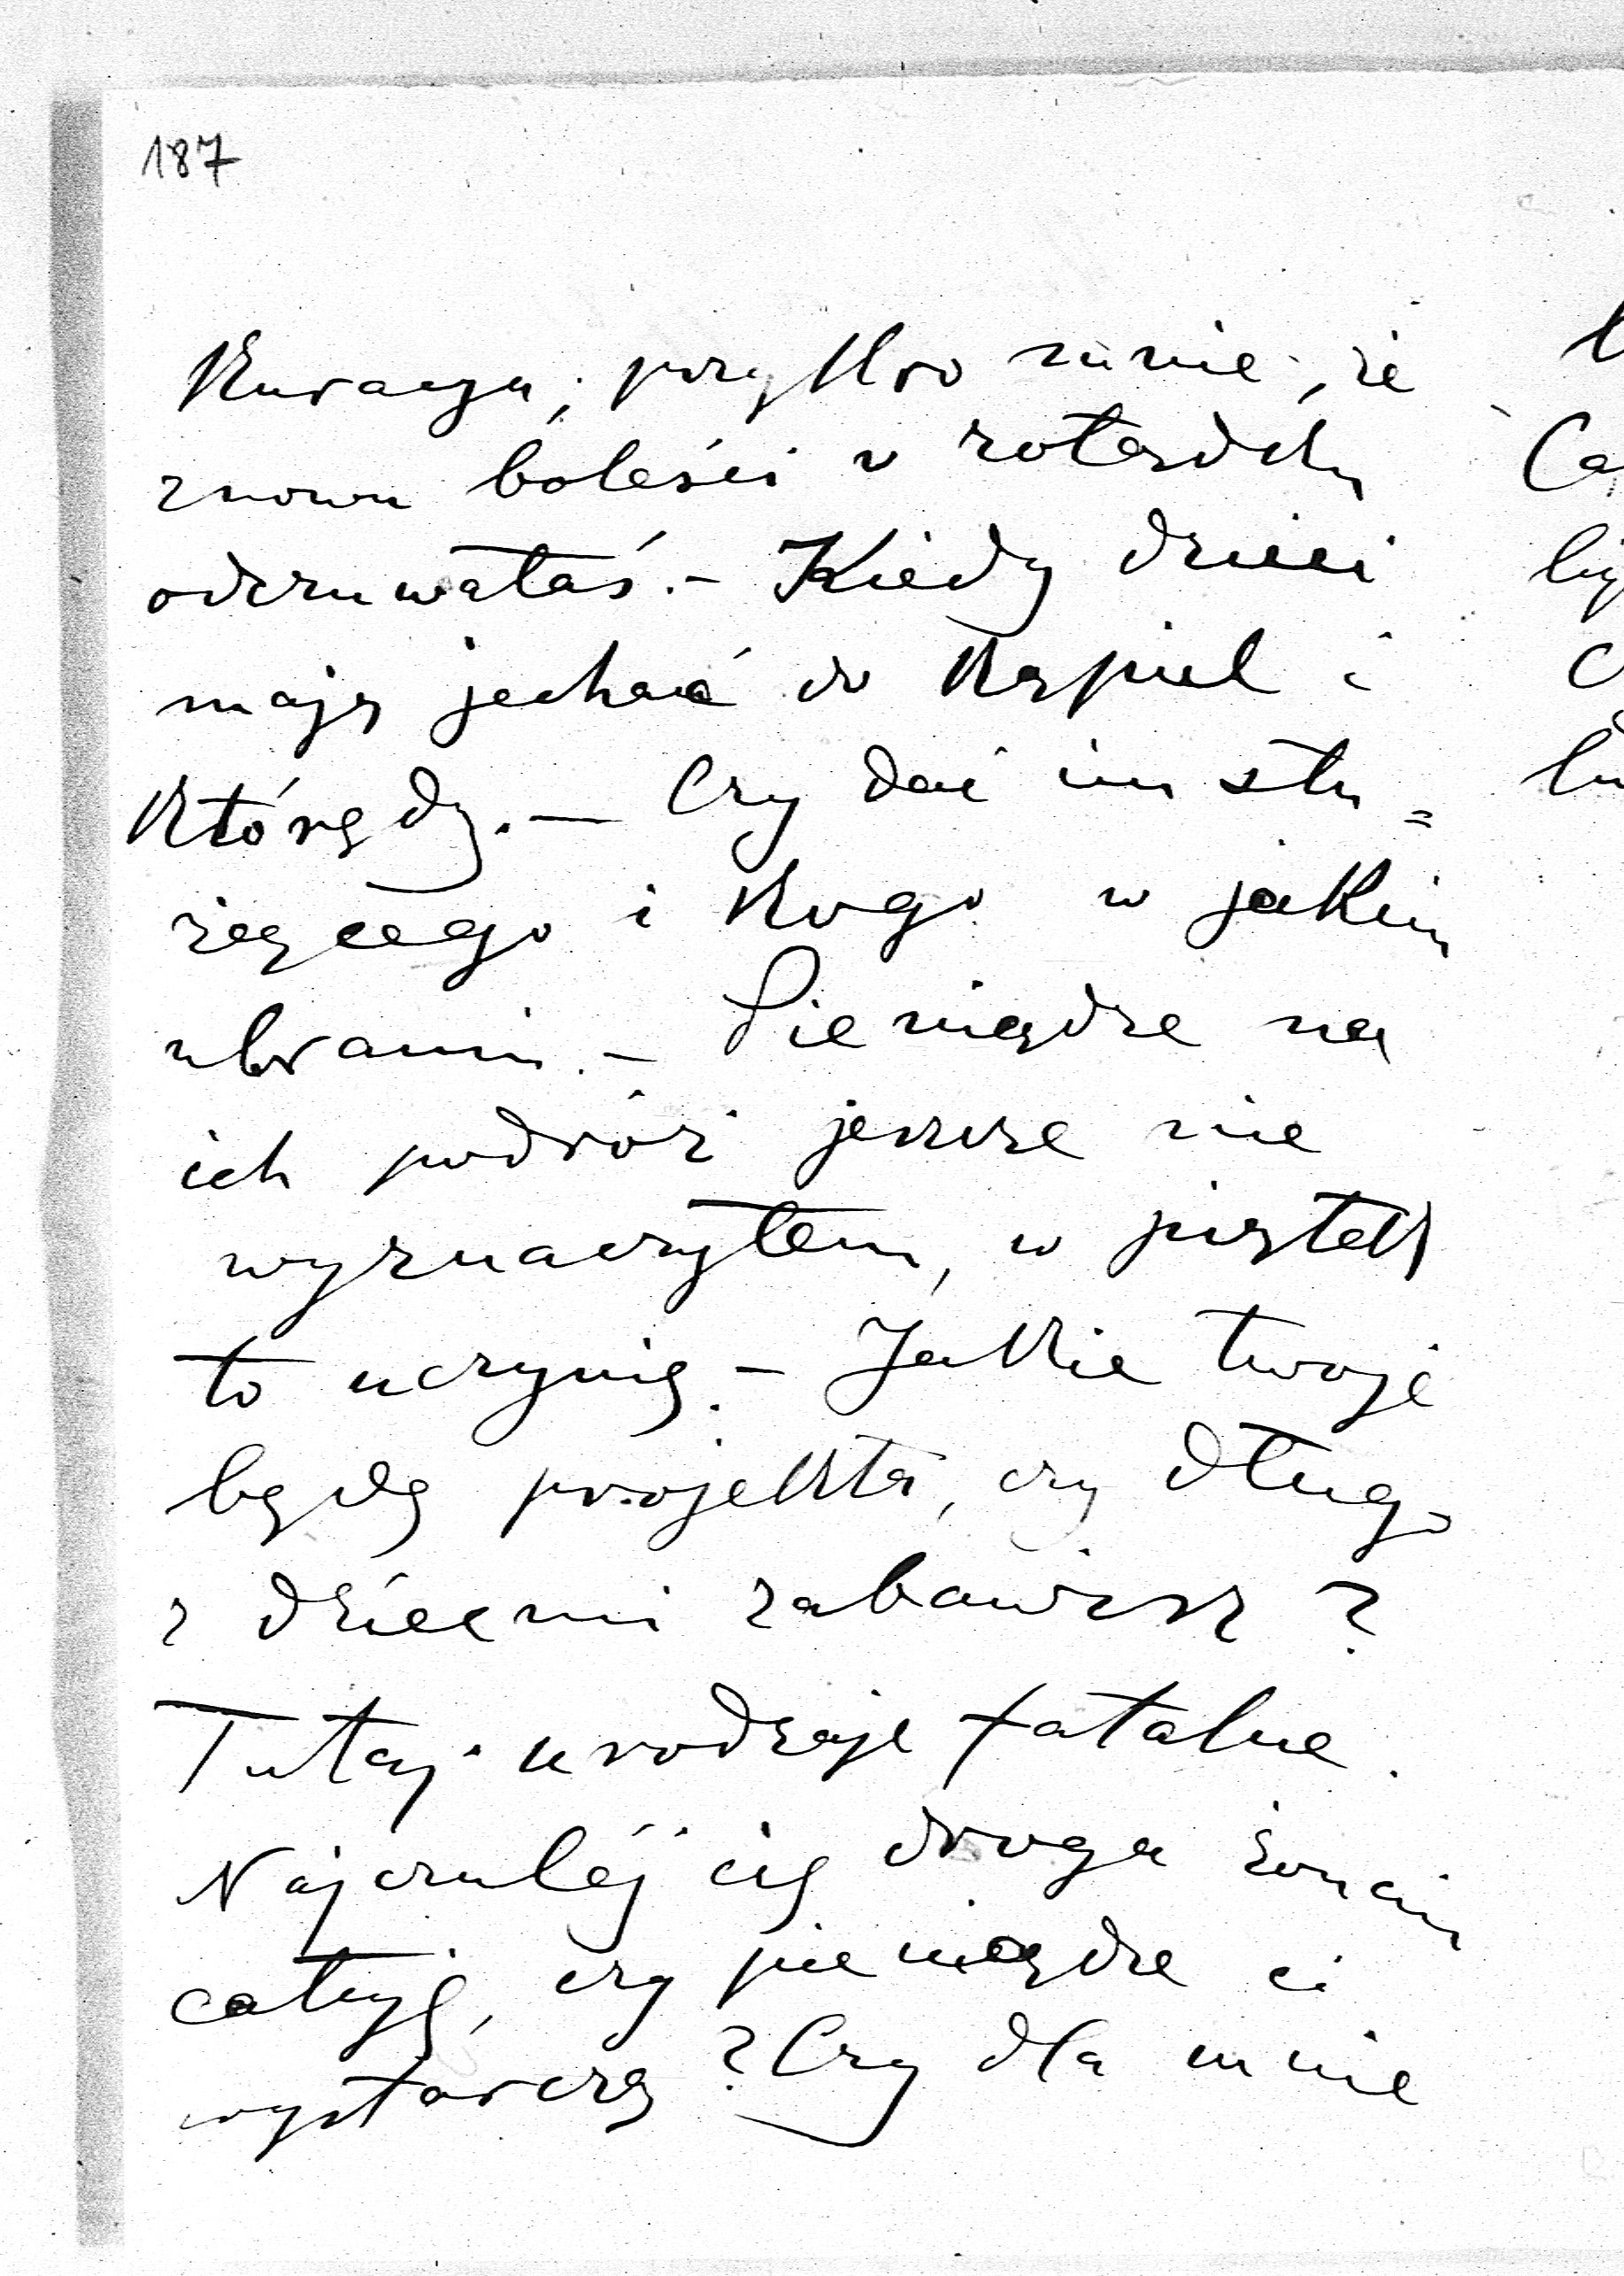 187
Kuracyą; przykro mnie, że
znowu boleści w żołądku
odczuwałaś. – Kiedy dzieci
mają jechać do Kąpiel i
którędy. — Czy dać im słu=
żącego i kogo w jakim
ubraniu. – Pieniądze na
ich podróż jeszcze nie
wyznaczyłem, w piątek
to uczynię. – Jakie twoje
będą projekta, czy długo
z dziećmi zabawisz?
Tutaj urodzaje fatalne.
Najczulej cię droga żonciu
całuję, czy pieniądze ci
wystarczą? Czy dla mnie